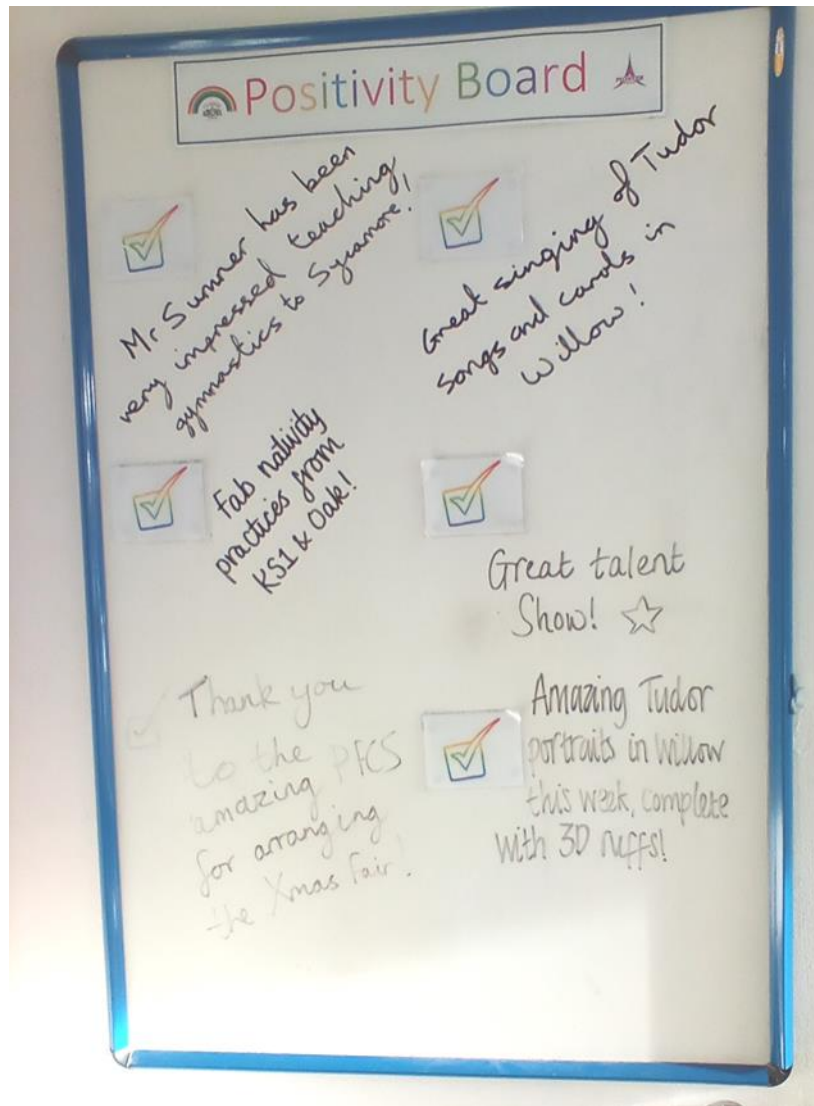 Positivity Board
Mr Sumner has been
very impressed teaching
gymnastics to Sycamore!
Great singing of Tudor
songs and carols in
Willow!
Fab nativity
practices from
KS1 & Oak!
Great talent
Show!
Thank you
to the PFCS
amazing
for arranging
the Xmas Fair!
Amazing Tudor
portraits in Willow
this week, complete
with 3D ruffs!